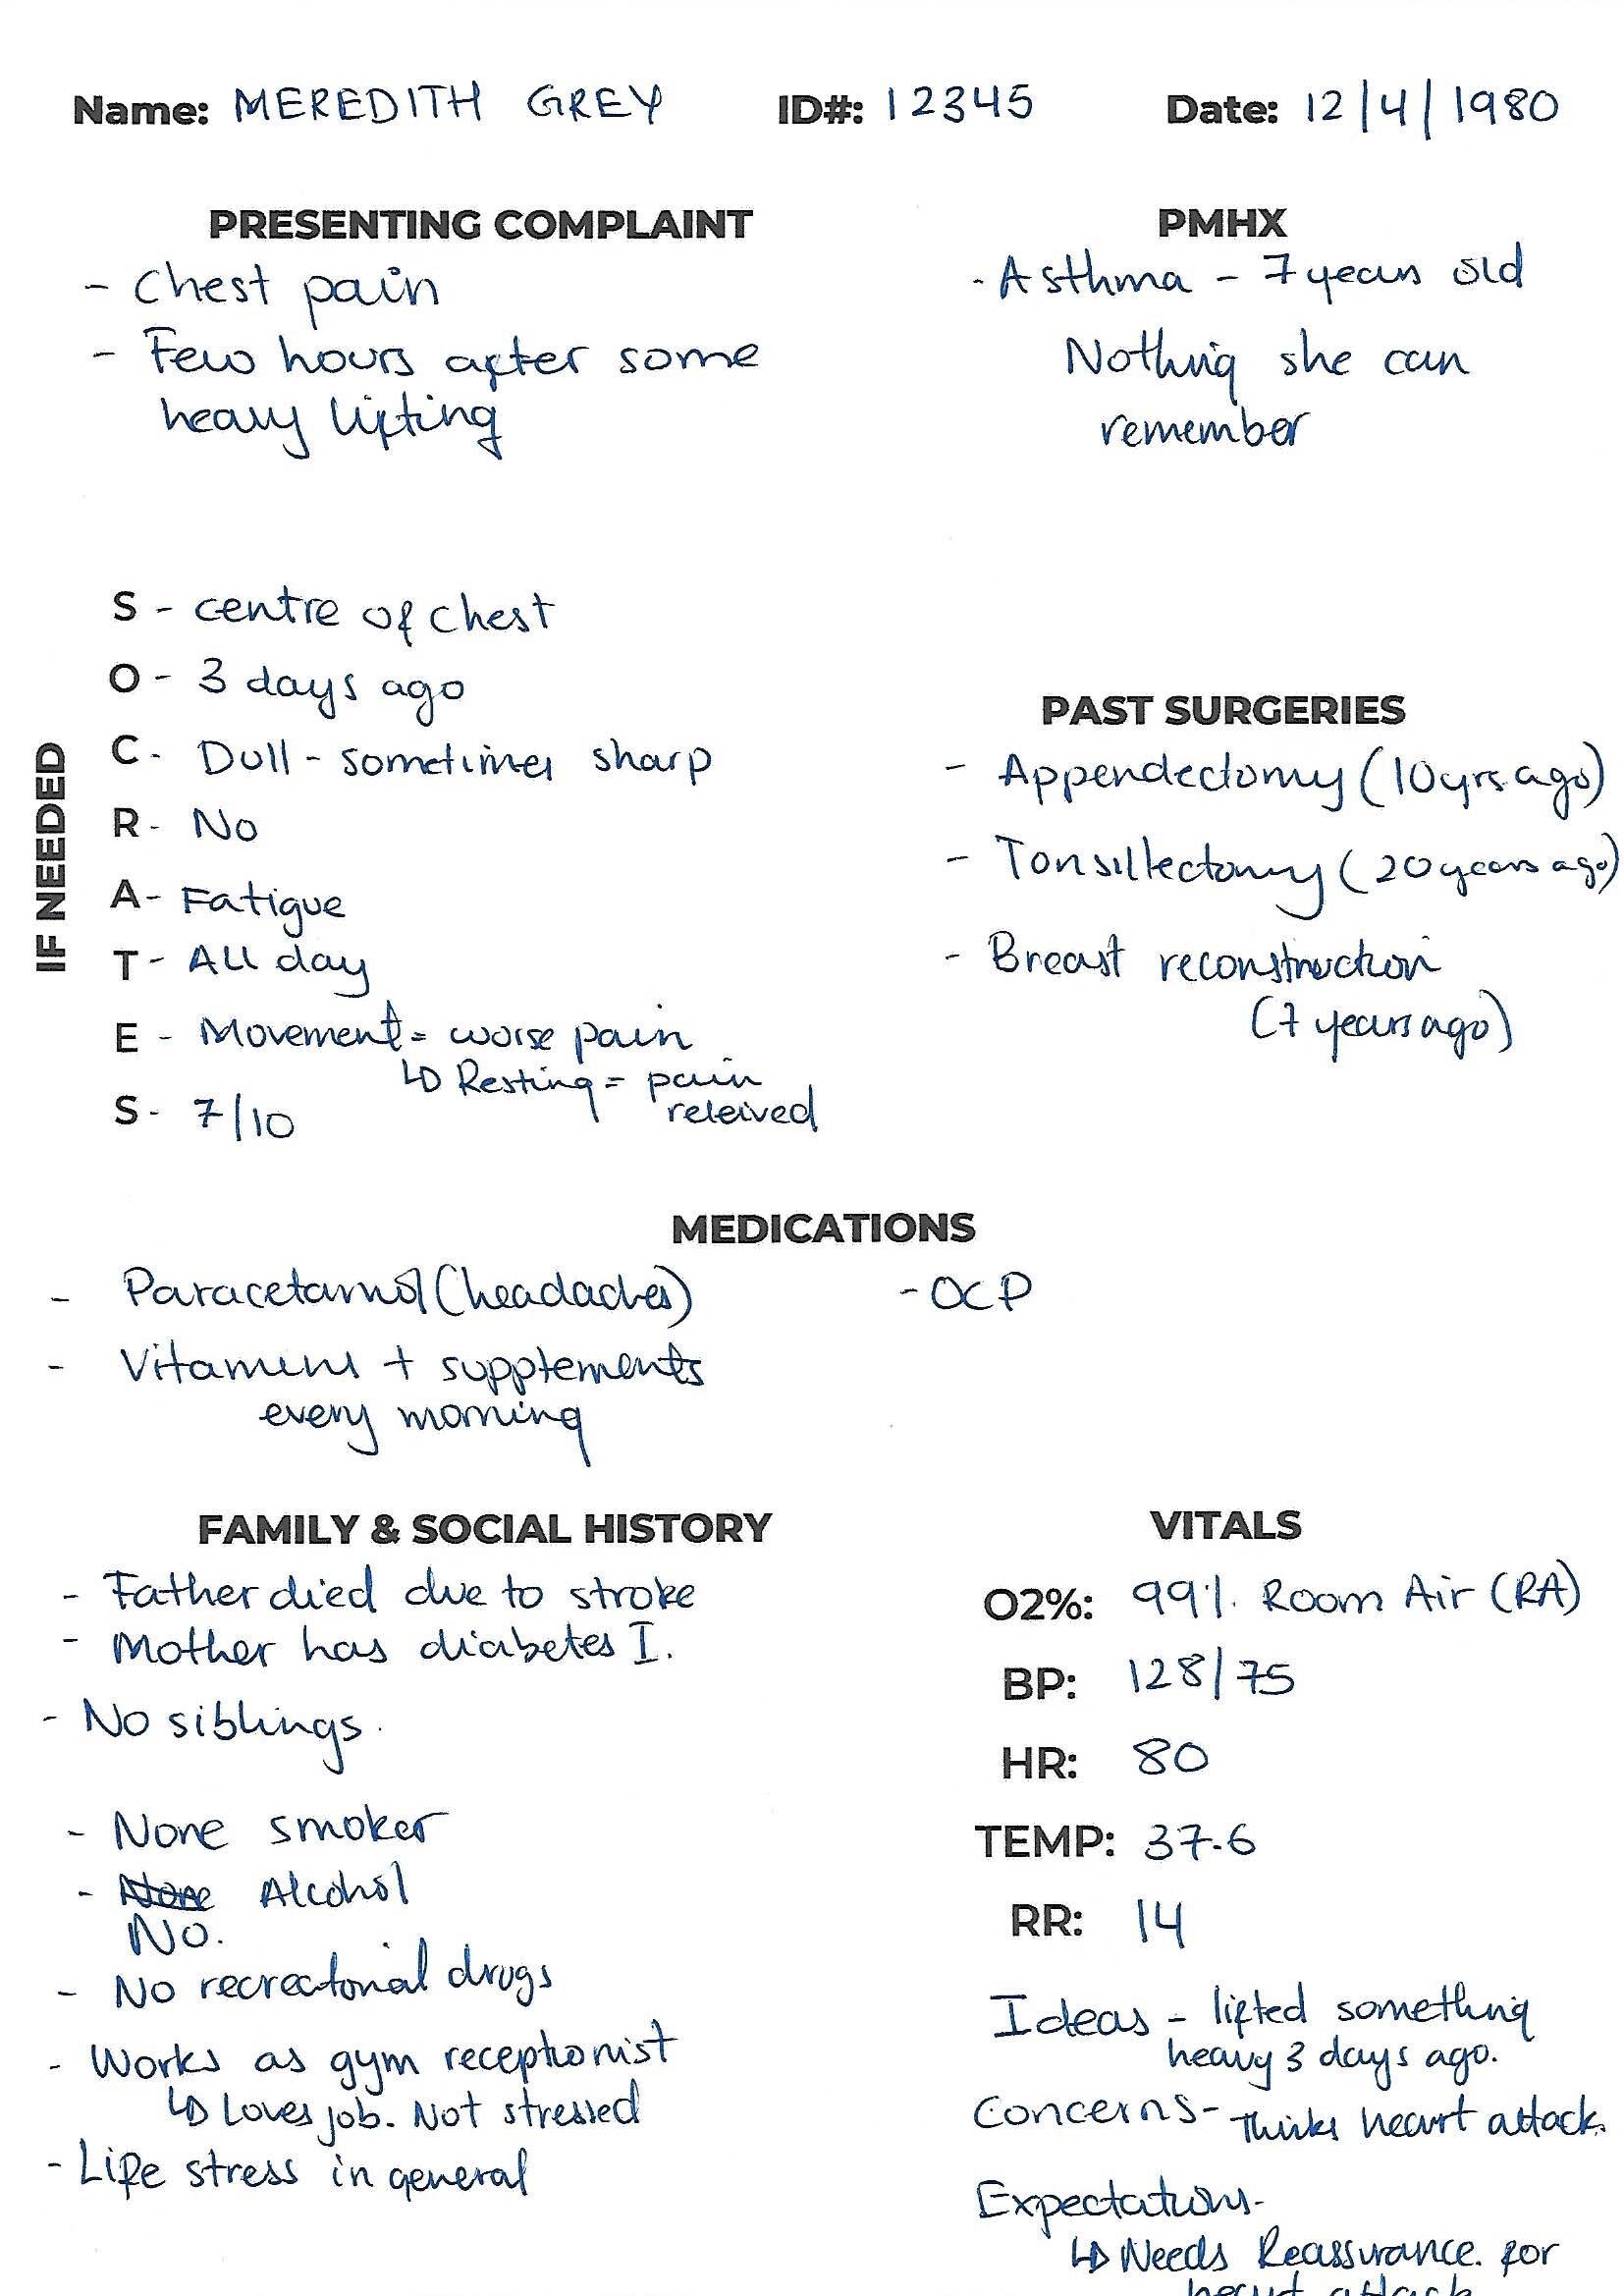 Name: MEREDITH GREY ID#: 12345 Date: 12/4/1980
PRESENTING COMPLAINT
- Chest pain
- Few hours after some
heavy lifting
PMHX
- Asthma - 7 years old
Nothing she can
remember
IF NEEDED
S - centre of chest
O - 3 days ago
C - Dull - sometimes sharp
R - No
A - Fatigue
T - All day
E - Movement = worse pain
↳ Resting = pain
releived
S - 7/10
PAST SURGERIES
- Appendectomy (10yrs ago)
- Tonsillectomy (20 years ago)
- Breast reconstruction
(7 years ago)
MEDICATIONS
- Paracetamol (headaches)
- Vitamins + supplements
every morning
- OCP
FAMILY & SOCIAL HISTORY
- Father died due to stroke
- Mother has diabetes I.
- No siblings.
- None smoker
- None Alcohol
No.
- No recreational drugs
- Works as gym receptionist
↳ Loves job. Not stressed
- Life stress in general
VITALS
O2%: 99% Room Air (RA)
BP: 128/75
HR: 80
TEMP: 37.6
RR: 14
Ideas - lifted something
heavy 3 days ago.
Concerns - Thinks heart attack.
Expectations -
↳ Needs Reassurance. for
heart attack